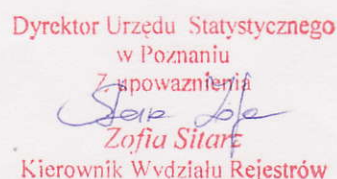 Dyrektor Urzędu Statystycznego
w Poznaniu
Z upoważnienia
Zofia Sitarz
Kierownik Wydziału Rejestrów